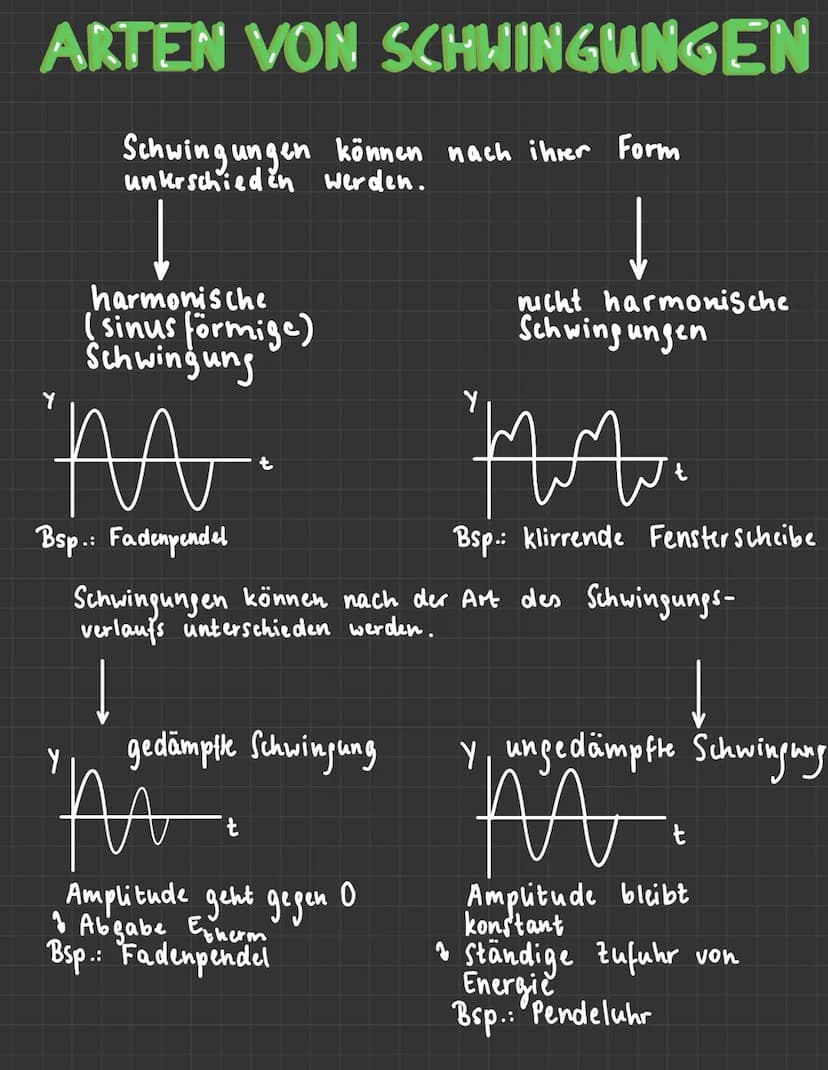 ARTEN VON SCHWINGUNGEN
Schwingungen können nach ihrer Form
unterschieden werden.
harmonische
(sinusförmige)
Schwingung
nicht harmonische
Schwingungen
y
t
Bsp.: Fadenpendel
y
t
Bsp.: klirrende Fensterscheibe
Schwingungen können nach der Art des Schwingungs-
verlaufs unterschieden werden.
gedämpfte Schwingung
y
t
Amplitude geht gegen 0
↴ Abgabe Etherm
Bsp.: Fadenpendel
ungedämpfte Schwingung
y
t
Amplitude bleibt
konstant
↴ Ständige Zufuhr von
Energie
Bsp.: Pendeluhr